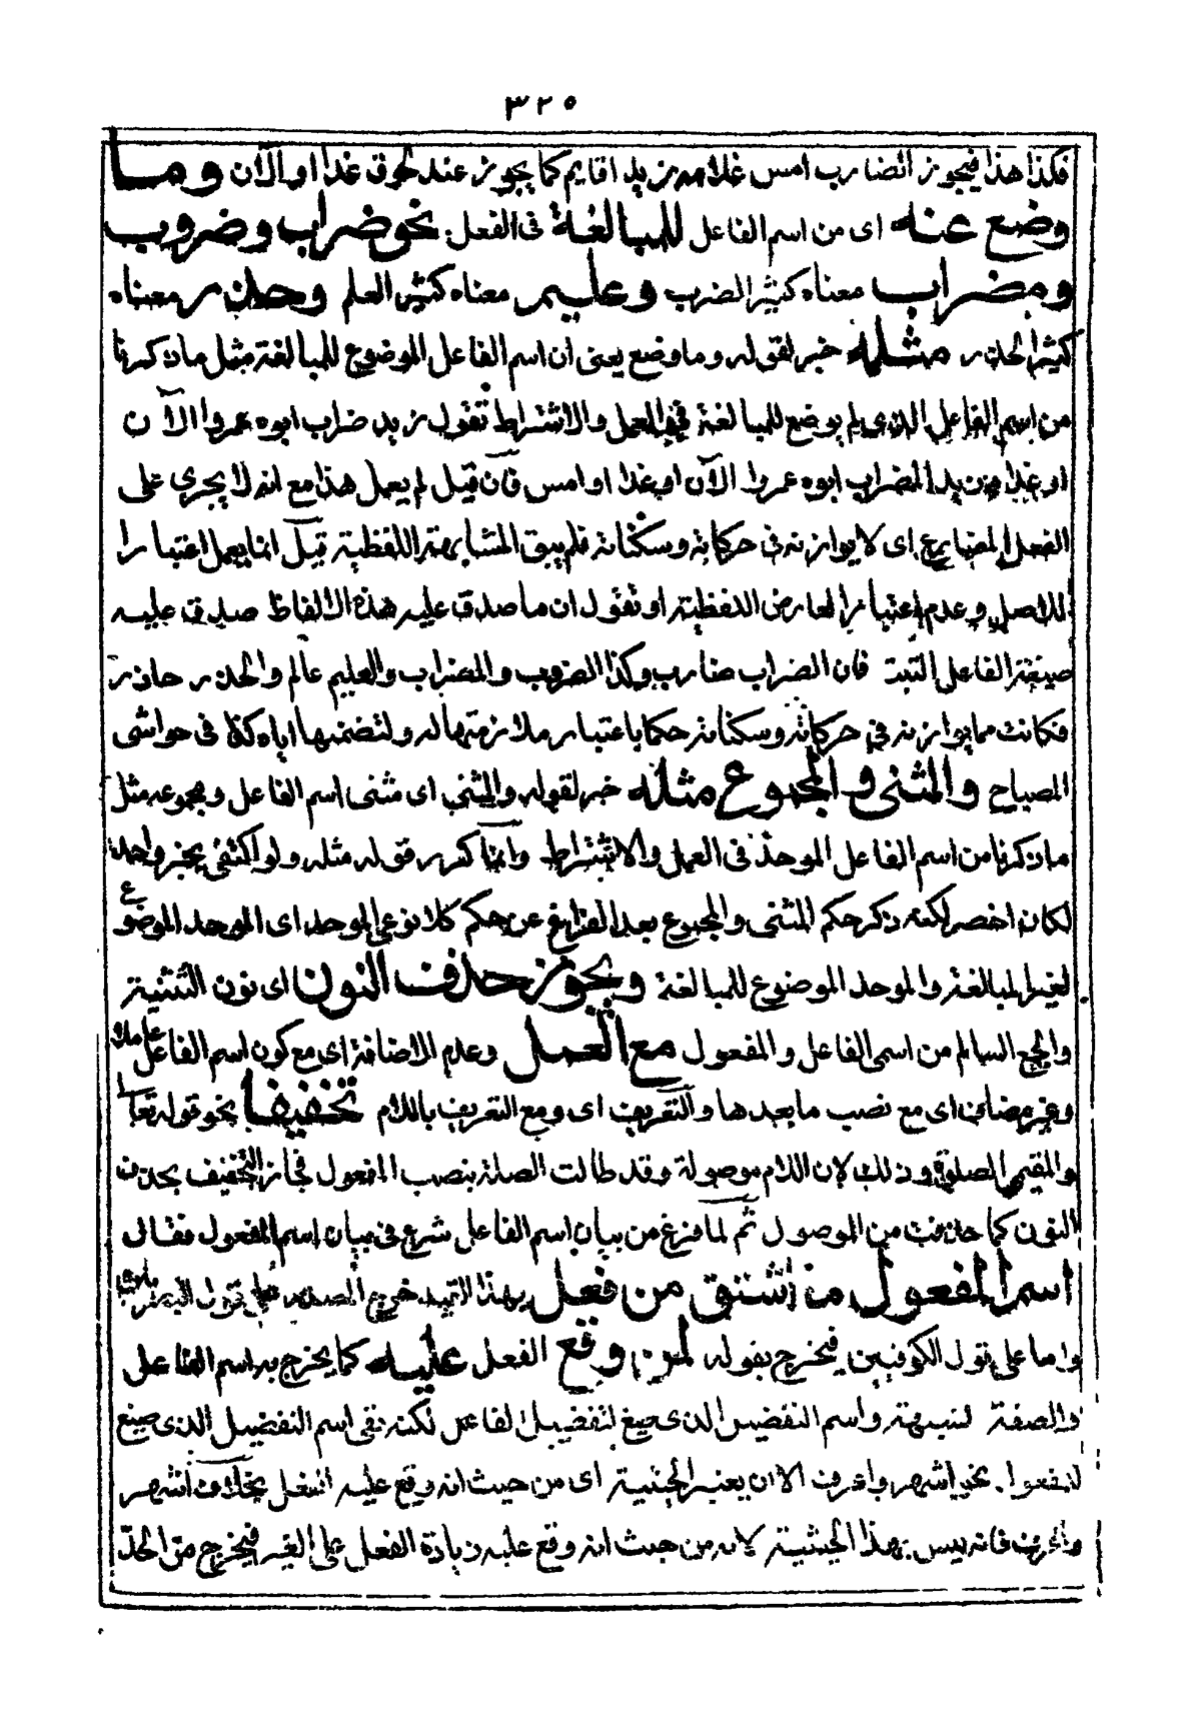 ٣٢٥
فكذا هذا فيجوز الضارب امس غلامه زيد اقايم كما يجوز عند لحوق غدا او الآن وما
وضع عنه اى من اسم الفاعل للمبالغة فى الفعل نحو ضراب وضروب
ومضراب معناه كثير الضرب وعليم معناه كثير العلم وحذر معناه
كثير الحذر مثله خبر لقوله وما وضع يعنى ان اسم الفاعل الموضوع للمبالغة مثل ما ذكرنا
من اسم الفاعل الذى لم يوضع للمبالغة فى العمل والاشتراط تقول زيد ضراب ابوه عمروا الآن
او غدا وزيد المضراب ابوه عمروا الآن او غدا او امس فان قيل لم يعمل هذا مع انه لا يجرى على
الفعل المضارع اى لا يوازنه فى حركاته وسكناته فلم يبق المشابهة اللفظية قيل انما يعمل اعتبارا
للاصل وعدم اعتبار العارض اللفظية او تقول ان ما صدق عليه هذه الالفاظ صدق عليه
صيغة الفاعل البتة فان الضراب ضارب وكذا الضروب والمضراب والعليم عالم والحذر حاذر
فكانت مما يوازنه فى حركاته وسكناته حكما باعتبار ملازمتها له ولتضمنها اياه كذا فى حواشى
المصباح والمثنى والمجموع مثله خبر لقوله والمثنى اى مثنى اسم الفاعل ومجموعه مثل
ما ذكرنا من اسم الفاعل الموحد فى العمل والاشتراط وانما كرر قوله مثله ولو اكتفى بخبر واحد
لكان اخصر لكنه ذكر حكم المثنى والمجموع بعد الفراغ عن حكم كلا نوعى الموحد اى الموحد الموضوع
لغير المبالغة والموحد الموضوع للمبالغة ويجوز حذف النون اى نون التثنية
والجمع السالم من اسمى الفاعل والمفعول مع العمل وعدم الاضافة اى مع كون اسم الفاعل عاملا
وغير مضاف اى مع نصب ما بعدها والتعريف اى ومع التعريف باللام تخفيفا نحو قوله تعالى
والمقيمى الصلوة وذلك لان اللام موصولة وقد طالت الصلة بنصب المفعول فجاز التخفيف بحذف
النون كما حذفت من الموصول ثم لما فرغ من بيان اسم الفاعل شرع فى بيان اسم المفعول فقال
اسم المفعول ما اشتق من فعل بهذا القيد خرج المصدر على قول البصريين
واما على قول الكوفيين فيخرج بقوله لمن وقع الفعل عليه كما يخرج به اسم الفاعل
والصفة المشبهة واسم التفضيل الذى صيغ لتفضيل الفاعل لكنه بقى اسم التفضيل الذى صيغ
للمفعول نحو اشهر واعرف الا ان يعتبر الحيثية اى من حيث انه وقع عليه الفعل بخلاف اشهر
واعرف فانه ليس بهذا الحيثية لانه من حيث انه وقع عليه زيادة الفعل على الغير فيخرج من الحد